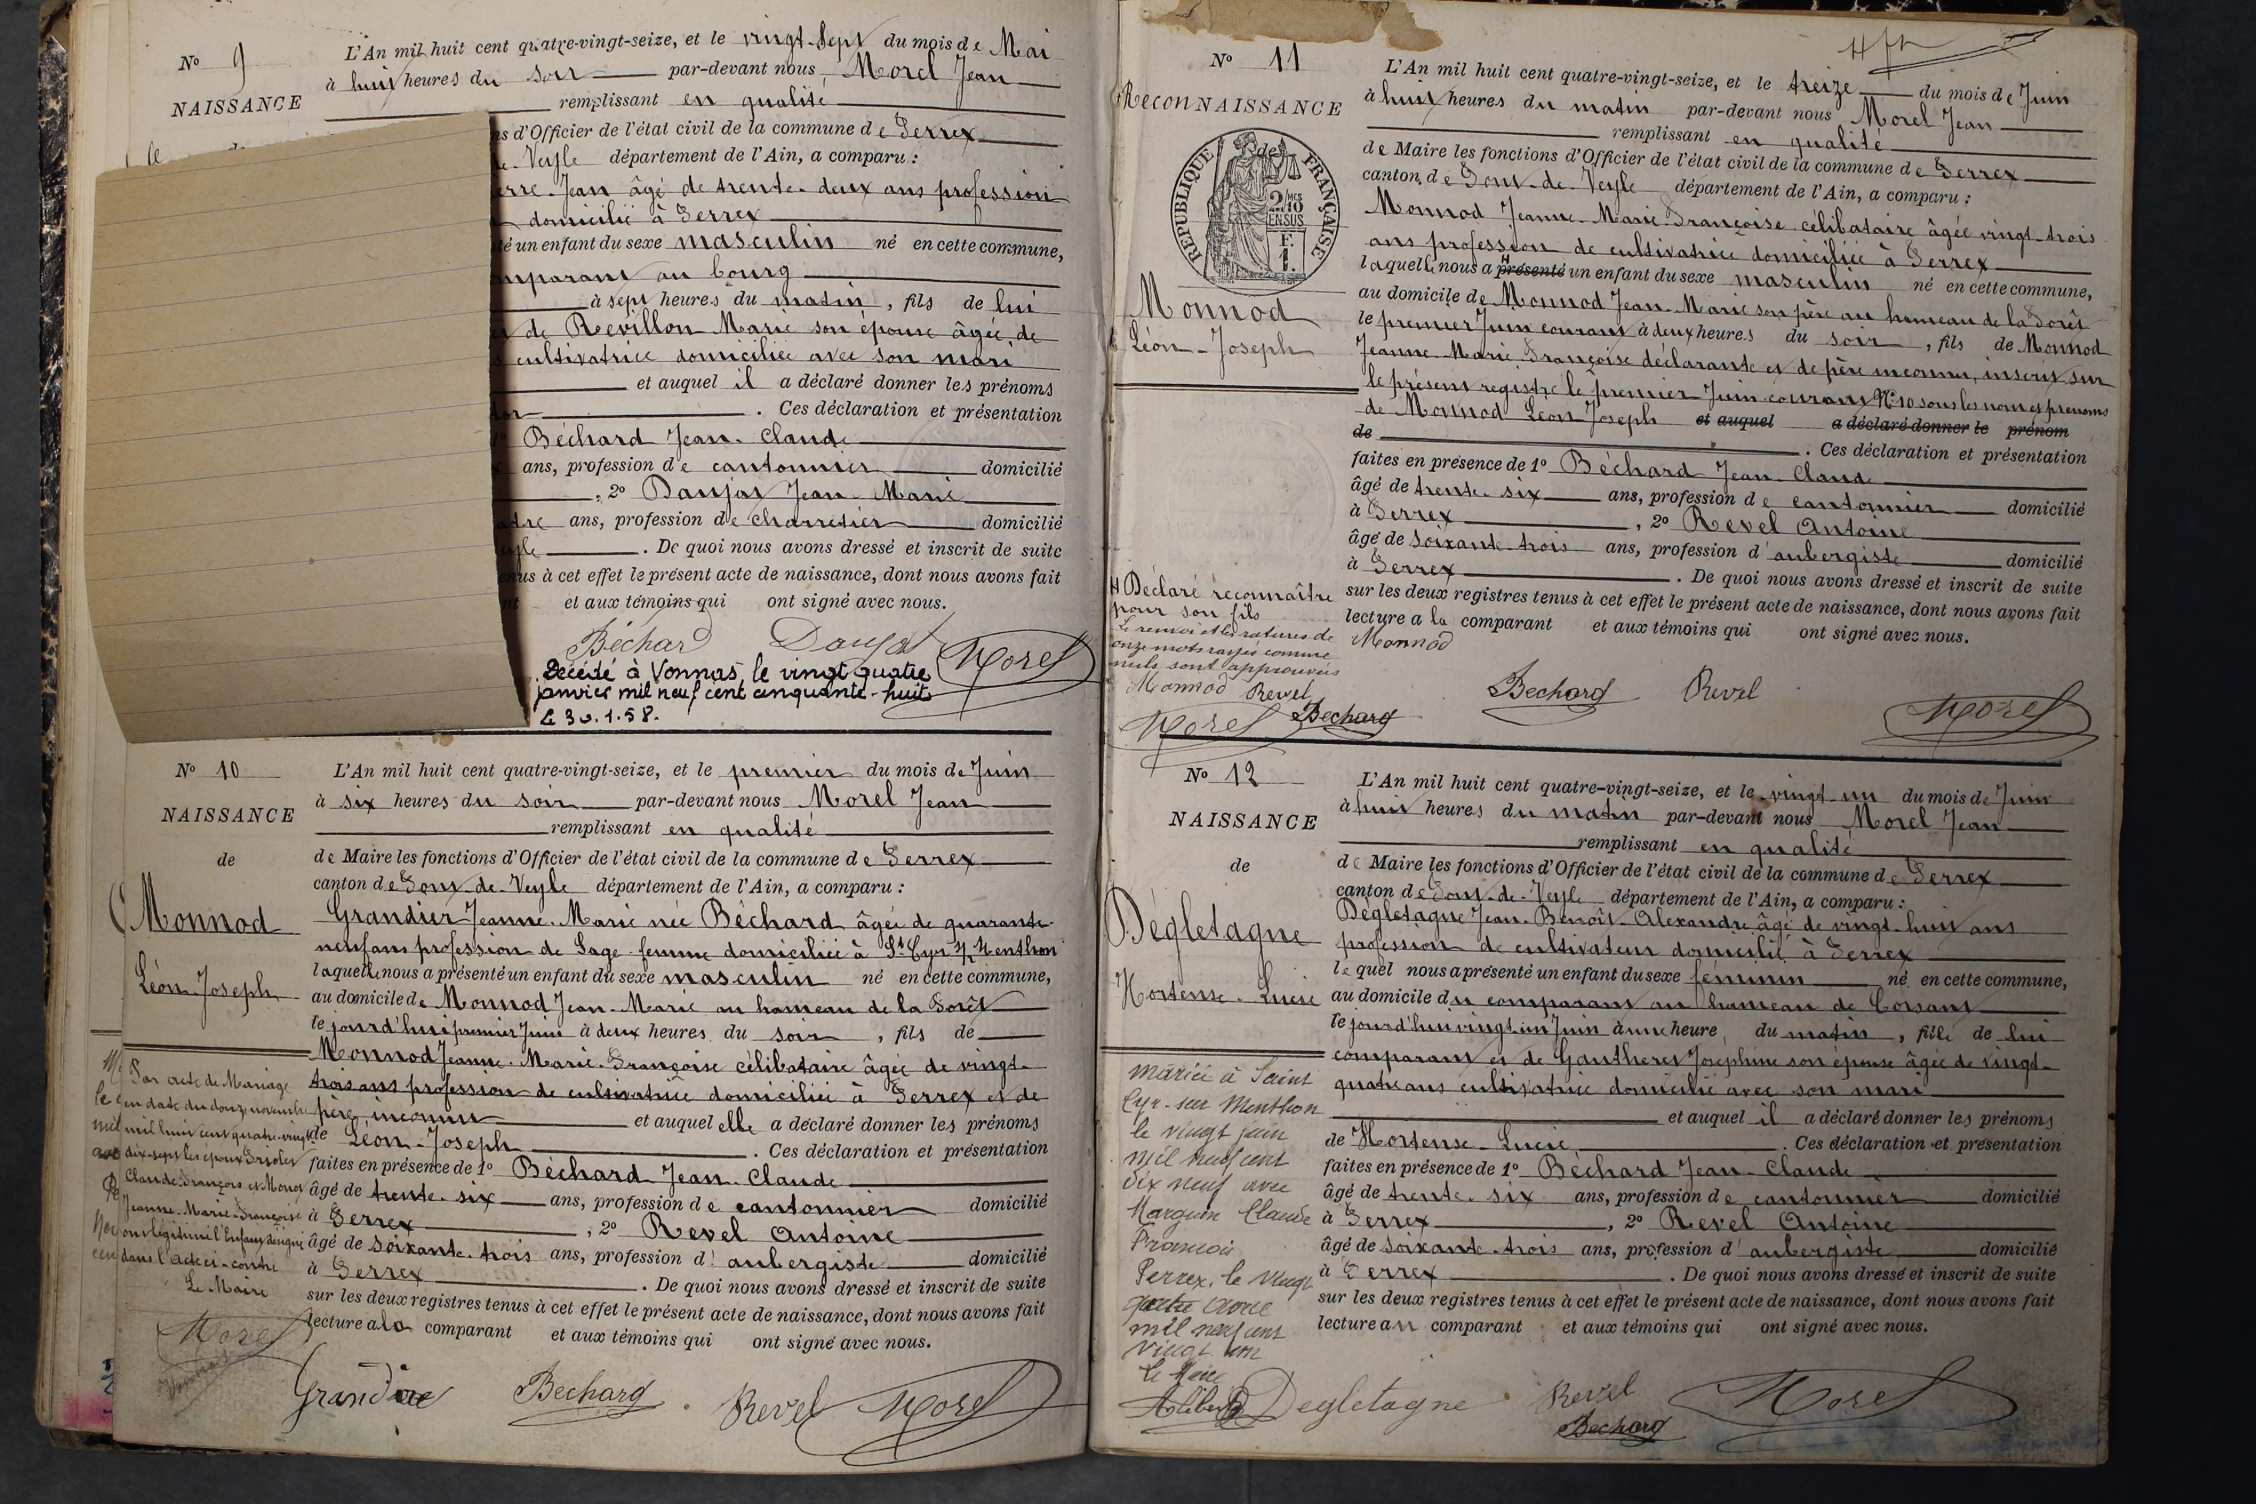 N° 9
NAISSANCE
L'An mil huit cent quatre-vingt-seize, et le vingt-sept du mois de Mai
à huit heures du soir par-devant nous Morel Jean
remplissant en qualité
ns d'Officier de l'état civil de la commune de Perrex
de-Veyle département de l'Ain, a comparu :
erre-Jean âgé de trente-deux ans profession
domicilié à Perrex
té un enfant du sexe masculin né en cette commune,
mparant au bourg
à sept heures du matin, fils de lui
et de Revillon Marie son épouse âgée de
cultivatrice domiciliée avec son mari
et auquel il a déclaré donner les prénoms
. Ces déclaration et présentation
Béchard Jean-Claude
ans, profession de cantonnier domicilié
, 2° Daujat Jean-Marie
atre ans, profession de charretier domicilié
eyle . De quoi nous avons dressé et inscrit de suite
enus à cet effet le présent acte de naissance, dont nous avons fait
nt et aux témoins qui ont signé avec nous.
Béchard Daujat Morel
Décédé à Vonnas, le vingt quatre
janvier mil neuf cent cinquante-huit
Le 30.1.58.
N° 10
NAISSANCE
de
Monnod
Léon-Joseph
L'An mil huit cent quatre-vingt-seize, et le premier du mois de Juin
à six heures du soir par-devant nous Morel Jean
remplissant en qualité
de Maire les fonctions d'Officier de l'état civil de la commune de Perrex
canton de Pont-de-Veyle département de l'Ain, a comparu :
Grandier Jeanne-Marie née Béchard âgée de quarante-
neuf ans profession de Sage-femme domiciliée à St Cyr s/ Menthon
laquelle nous a présenté un enfant du sexe masculin né en cette commune,
au domicile de Monnod Jean-Marie au hameau de la Forêt
le jourd'hui premier Juin à deux heures du soir, fils de
Monnod Jeanne-Marie-Françoise célibataire âgée de vingt-
trois ans profession de cultivatrice domiciliée à Perrex et de
père inconnu et auquel elle a déclaré donner les prénoms
de Léon-Joseph . Ces déclaration et présentation
faites en présence de 1° Béchard Jean-Claude
âgé de trente-six ans, profession de cantonnier domicilié
à Perrex , 2° Revel Antoine
âgé de soixante-trois ans, profession d'aubergiste domicilié
à Perrex . De quoi nous avons dressé et inscrit de suite
sur les deux registres tenus à cet effet le présent acte de naissance, dont nous avons fait
lecture a la comparant et aux témoins qui ont signé avec nous.
Par acte de Mariage
en date du douze novembre
mil huit cent quatre-vingt
dix-sept les époux
Claude-François et Monnod
Jeanne-Marie-Françoise
ont légitimé l'Enfant désigné
dans l'acte ci-contre
Le Maire
Morel
Bechard Revel Morel
N° 11
RECONNAISSANCE
REPUBLIQUE FRANÇAISE
2/10
EN SUS
Monnod
Léon-Joseph
L'An mil huit cent quatre-vingt-seize, et le treize du mois de Juin
à huit heures du matin par-devant nous Morel Jean
remplissant en qualité
de Maire les fonctions d'Officier de l'état civil de la commune de Perrex
canton de Pont-de-Veyle département de l'Ain, a comparu :
Monnod Jeanne-Marie-Françoise célibataire âgée vingt-trois
ans profession de cultivatrice domiciliée à Perrex
laquelle nous a présenté un enfant du sexe masculin né en cette commune,
au domicile de Monnod Jean-Marie son père au hameau de la Forêt
le premier Juin courant à deux heures du soir, fils de Monnod
Jeanne-Marie Françoise déclarante et de père inconnu, inscrit sur
le présent registre le premier Juin courant N° 10 sous les nom et prénoms
de Monnod Léon Joseph et auquel a déclaré donner le prénom
de . Ces déclaration et présentation
faites en présence de 1° Béchard Jean-Claude
âgé de trente-six ans, profession de cantonnier domicilié
à Perrex , 2° Revel Antoine
âgé de soixante-trois ans, profession d'aubergiste domicilié
à Perrex . De quoi nous avons dressé et inscrit de suite
sur les deux registres tenus à cet effet le présent acte de naissance, dont nous avons fait
lecture a la comparant et aux témoins qui ont signé avec nous.
Déclaré reconnaître
pour son fils
Le renvoi et les ratures de
onze mots rayés comme
nuls sont approuvés
Monnod Revel
Morel Bechard
Monnod
Bechard Revel Morel
N° 12
NAISSANCE
de
Dégletagne
Hortense-Lucie
L'An mil huit cent quatre-vingt-seize, et le vingt-un du mois de Juin
à huit heures du matin par-devant nous Morel Jean
remplissant en qualité
de Maire les fonctions d'Officier de l'état civil de la commune de Perrex
canton de Pont-de-Veyle département de l'Ain, a comparu :
Dégletagne Jean-Benoît-Alexandre âgé de vingt-huit ans
profession de cultivateur domicilié à Perrex
lequel nous a présenté un enfant du sexe féminin né en cette commune,
au domicile du comparant au hameau de Corsant
le jourd'hui vingt-un Juin à une heure du matin, fille de lui
comparant et de Gautheret Joséphine son épouse âgée de vingt-
quatre ans cultivatrice domicilié avec son mari
et auquel il a déclaré donner les prénoms
de Hortense-Lucie . Ces déclaration et présentation
faites en présence de 1° Béchard Jean-Claude
âgé de trente-six ans, profession de cantonnier domicilié
à Perrex , 2° Revel Antoine
âgé de soixante-trois ans, profession d'aubergiste domicilié
à Perrex . De quoi nous avons dressé et inscrit de suite
sur les deux registres tenus à cet effet le présent acte de naissance, dont nous avons fait
lecture au comparant et aux témoins qui ont signé avec nous.
Mariée à Saint
Cyr-sur Menthon
le vingt juin
mil neuf cent
dix neuf avec
Marguin Claude
François
Perrex, le vingt
quatre
mil neuf cent
vingt un
Le Maire
Degletagne Revel Morel
Bechard